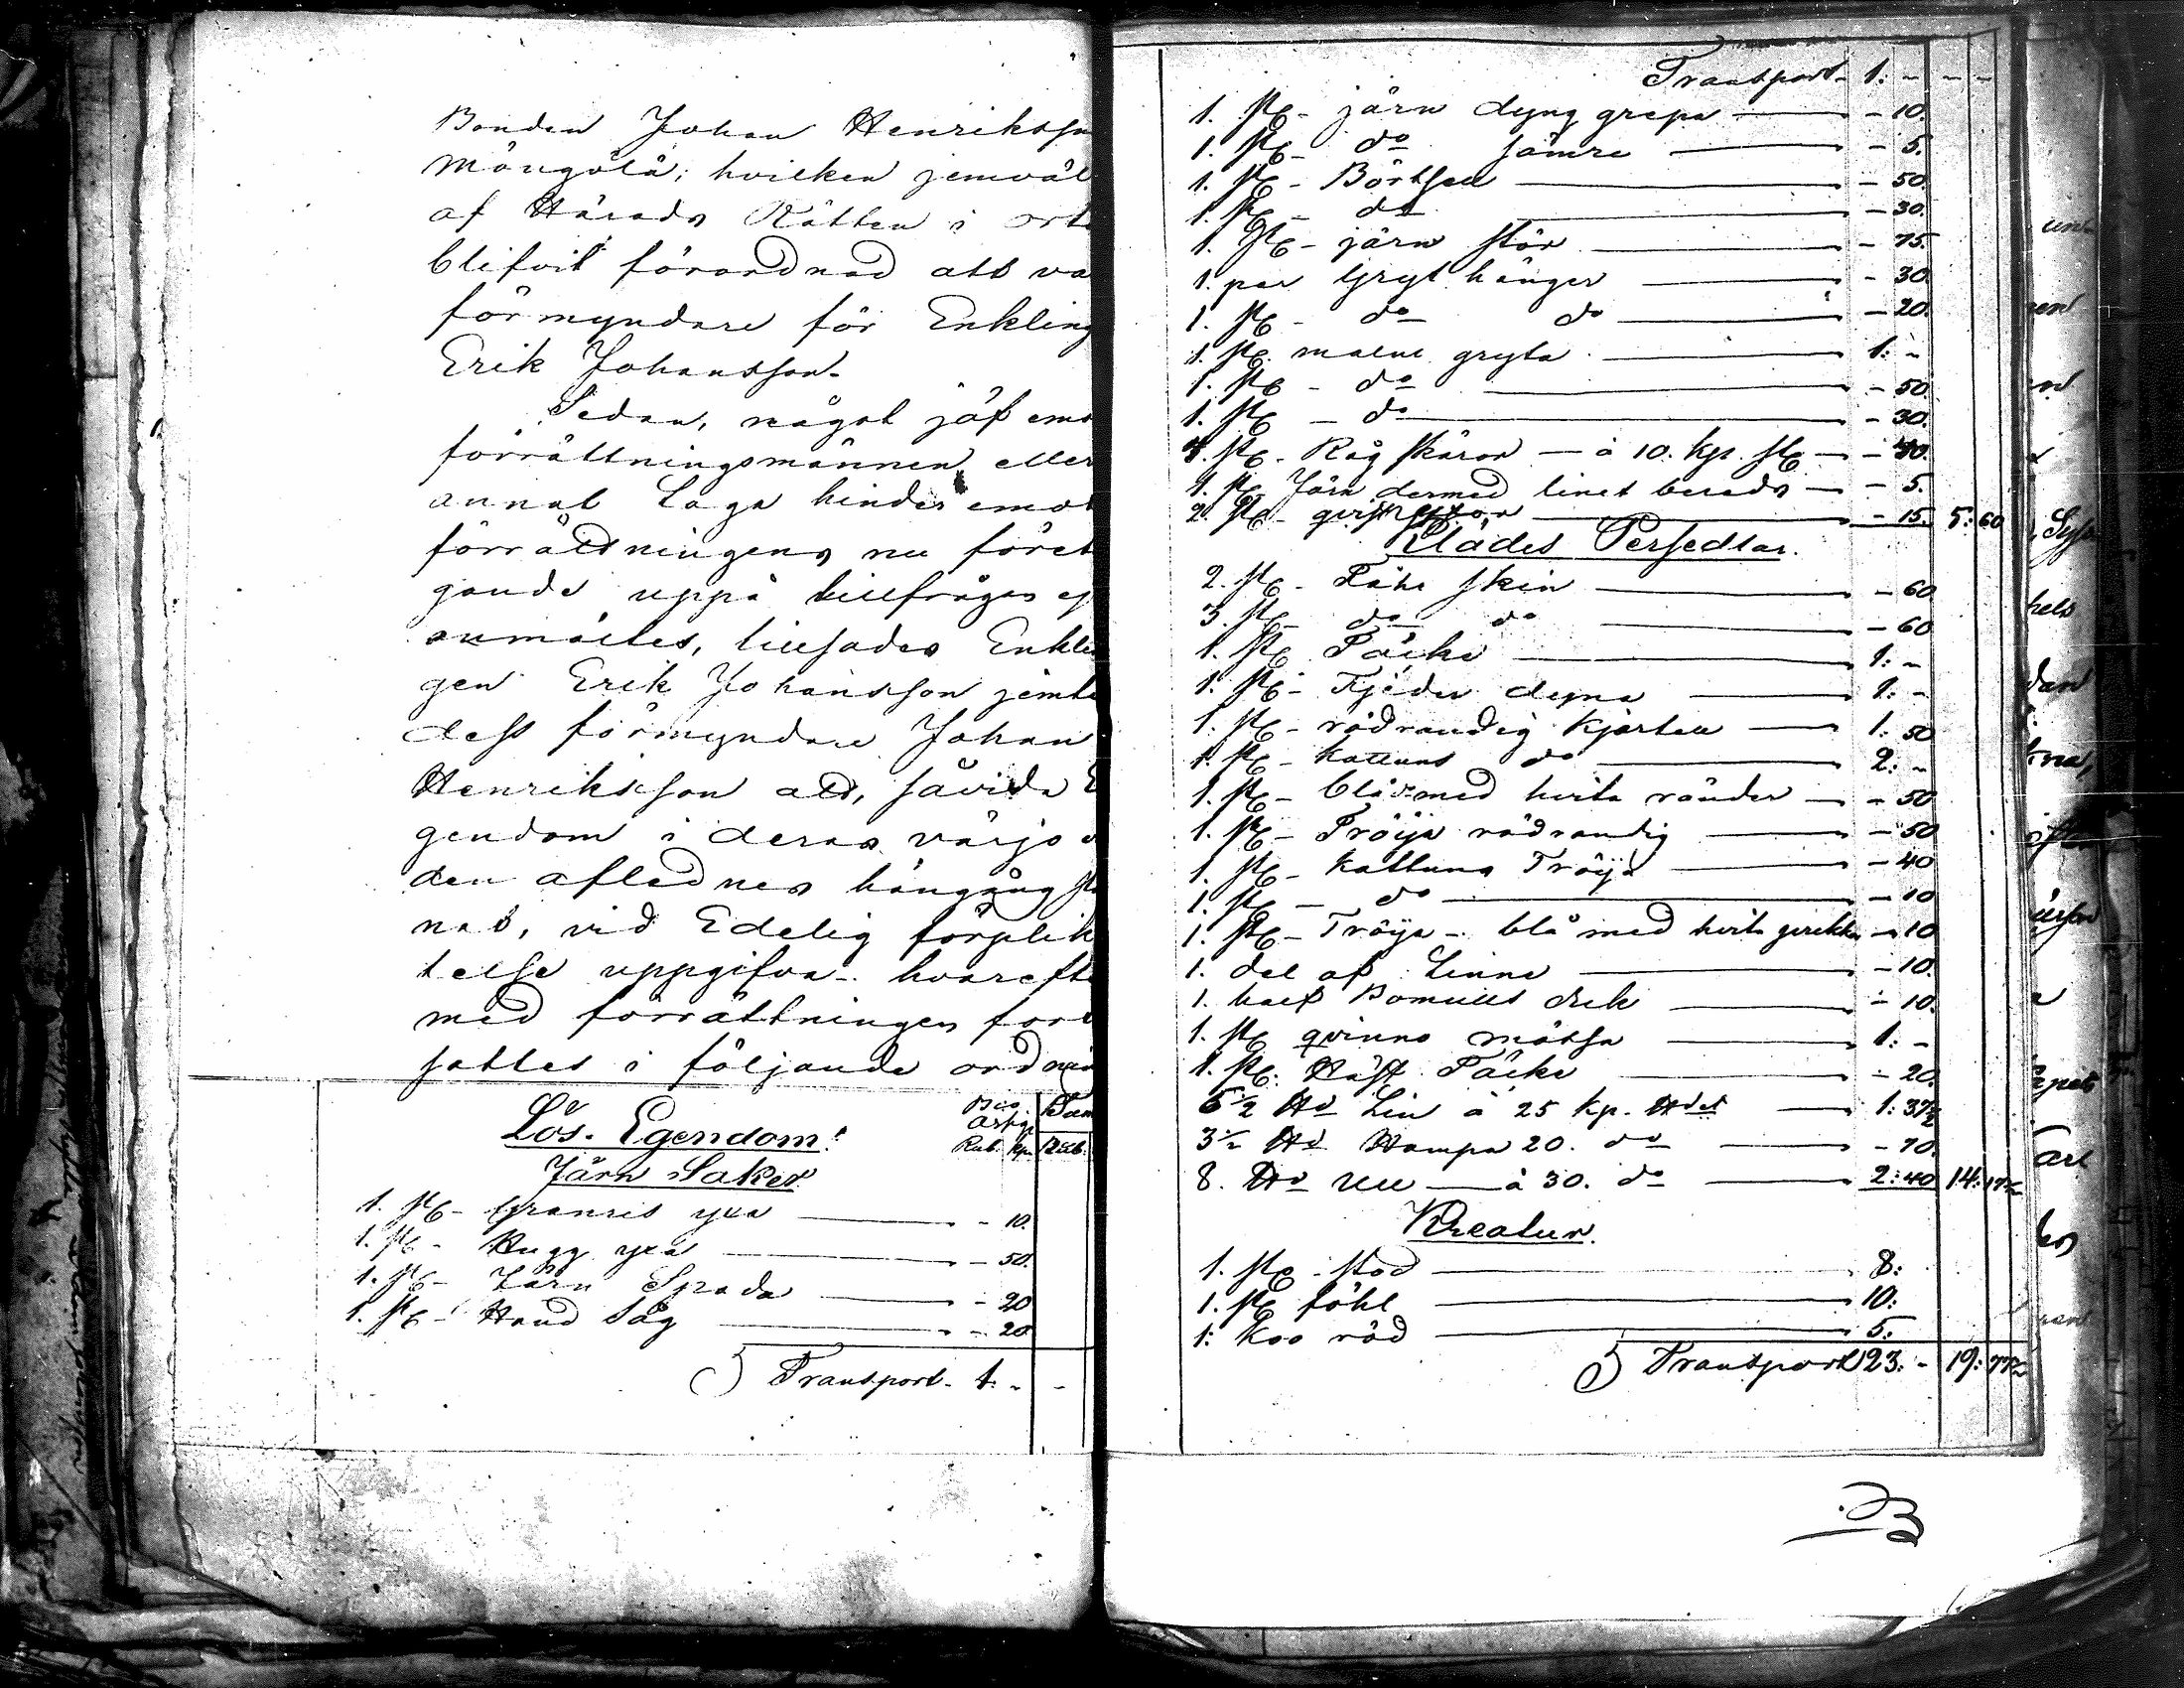 Bonden Johan Henriksson
Mängölä; hvilken jemväl
af Härads Rätten i ort
blifvit förordnad att va
förmyndare för Enkling
Erik Johansson.
Sedan, något jäf emo
förrättningsmännen eller
annat Laga hinder emot
förrättningens nu föret
gande uppå tillfrågan ej
anmältes, tillsades Enklin
gen Erik Johansson jemte
dess förmyndare Johan
Henriksson att, såvida E
gendom i deras värjo v
den aflednes hängång sta
nat, vid Edelig förplik
telse uppgifva. hvarefte
med förrättningen fort
sattes i följande ordnin
Lös. Egendom:
Rub. kp. Rub.
Järn Saker
1. st - Granris yxa - 10.
1. st - Hugg yxa - 50.
1. st - Järn Spada - 20
1. st - Hand Såg - 20
Transport. 1: - -
Transport - 1: - - -
1. st - järn dyng grepa - 10.
1. st - do sämre - 5.
1. st - Börtsel - 50.
1. st - do - 30.
1. st - järn stör - 75.
1. par Gryt hänger - 30.
1. st - do do - 20.
1. st. malm gryta 1: -
1. st - do - 50
1. st - do - 30.
4. st - Råg skäror - à 10. kp. st - 40.
1. st Järn dermed linet bereds - 5.
2. st - - 15. 5: 60
Klädes Persedlar.
2. st - Fåhr skin - 60
3. st - do do - 60
1. st Täcke 1: -
1. st - Fjeder dyna 1: -
1. st - rödrandig Kjortel 1: 50
1. st - Kattuns do 2: -
1. st - blå med hvita ränder - 50
1. st - Tröija rödrandig - 50
1. st - Kattuns Tröija - 40
1. st - do - 10
1. st - Tröija - blå med hvita - 10
1. del af Linne - 10.
1. half Bomulls duk - 10.
1. st qvinno mössa 1: -
1. st. Häst Täcke - 20.
5 1/2 Lin à 25 kp. 1: 37 1/2
3 1/2 Hampa 20. do - 70.
8. Ull à 30. do 2: 40 14: 17 1/2
Kreatur.
1. st - stod 8:
1. st föhl 10:
1: Koo röd 5:
Transport 23: - 19: 77 1/2